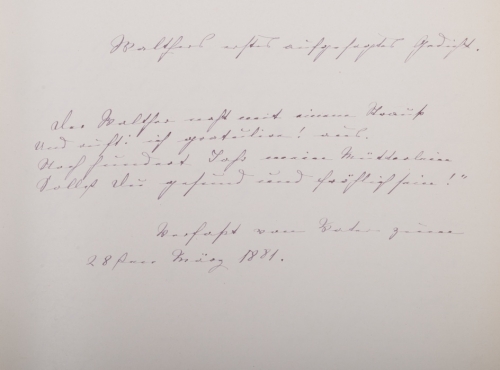 Walthers erstes aufgesagtes Gedicht.
Der Walther naht mit einem Strauß
Und ruft: ich gratulire! aus.
Noch hundert Jahr mein Mütterlein
Sollst Du gesund und fröhlich sein!"
Verfaßt vom Vater zum
28sten März 1881.